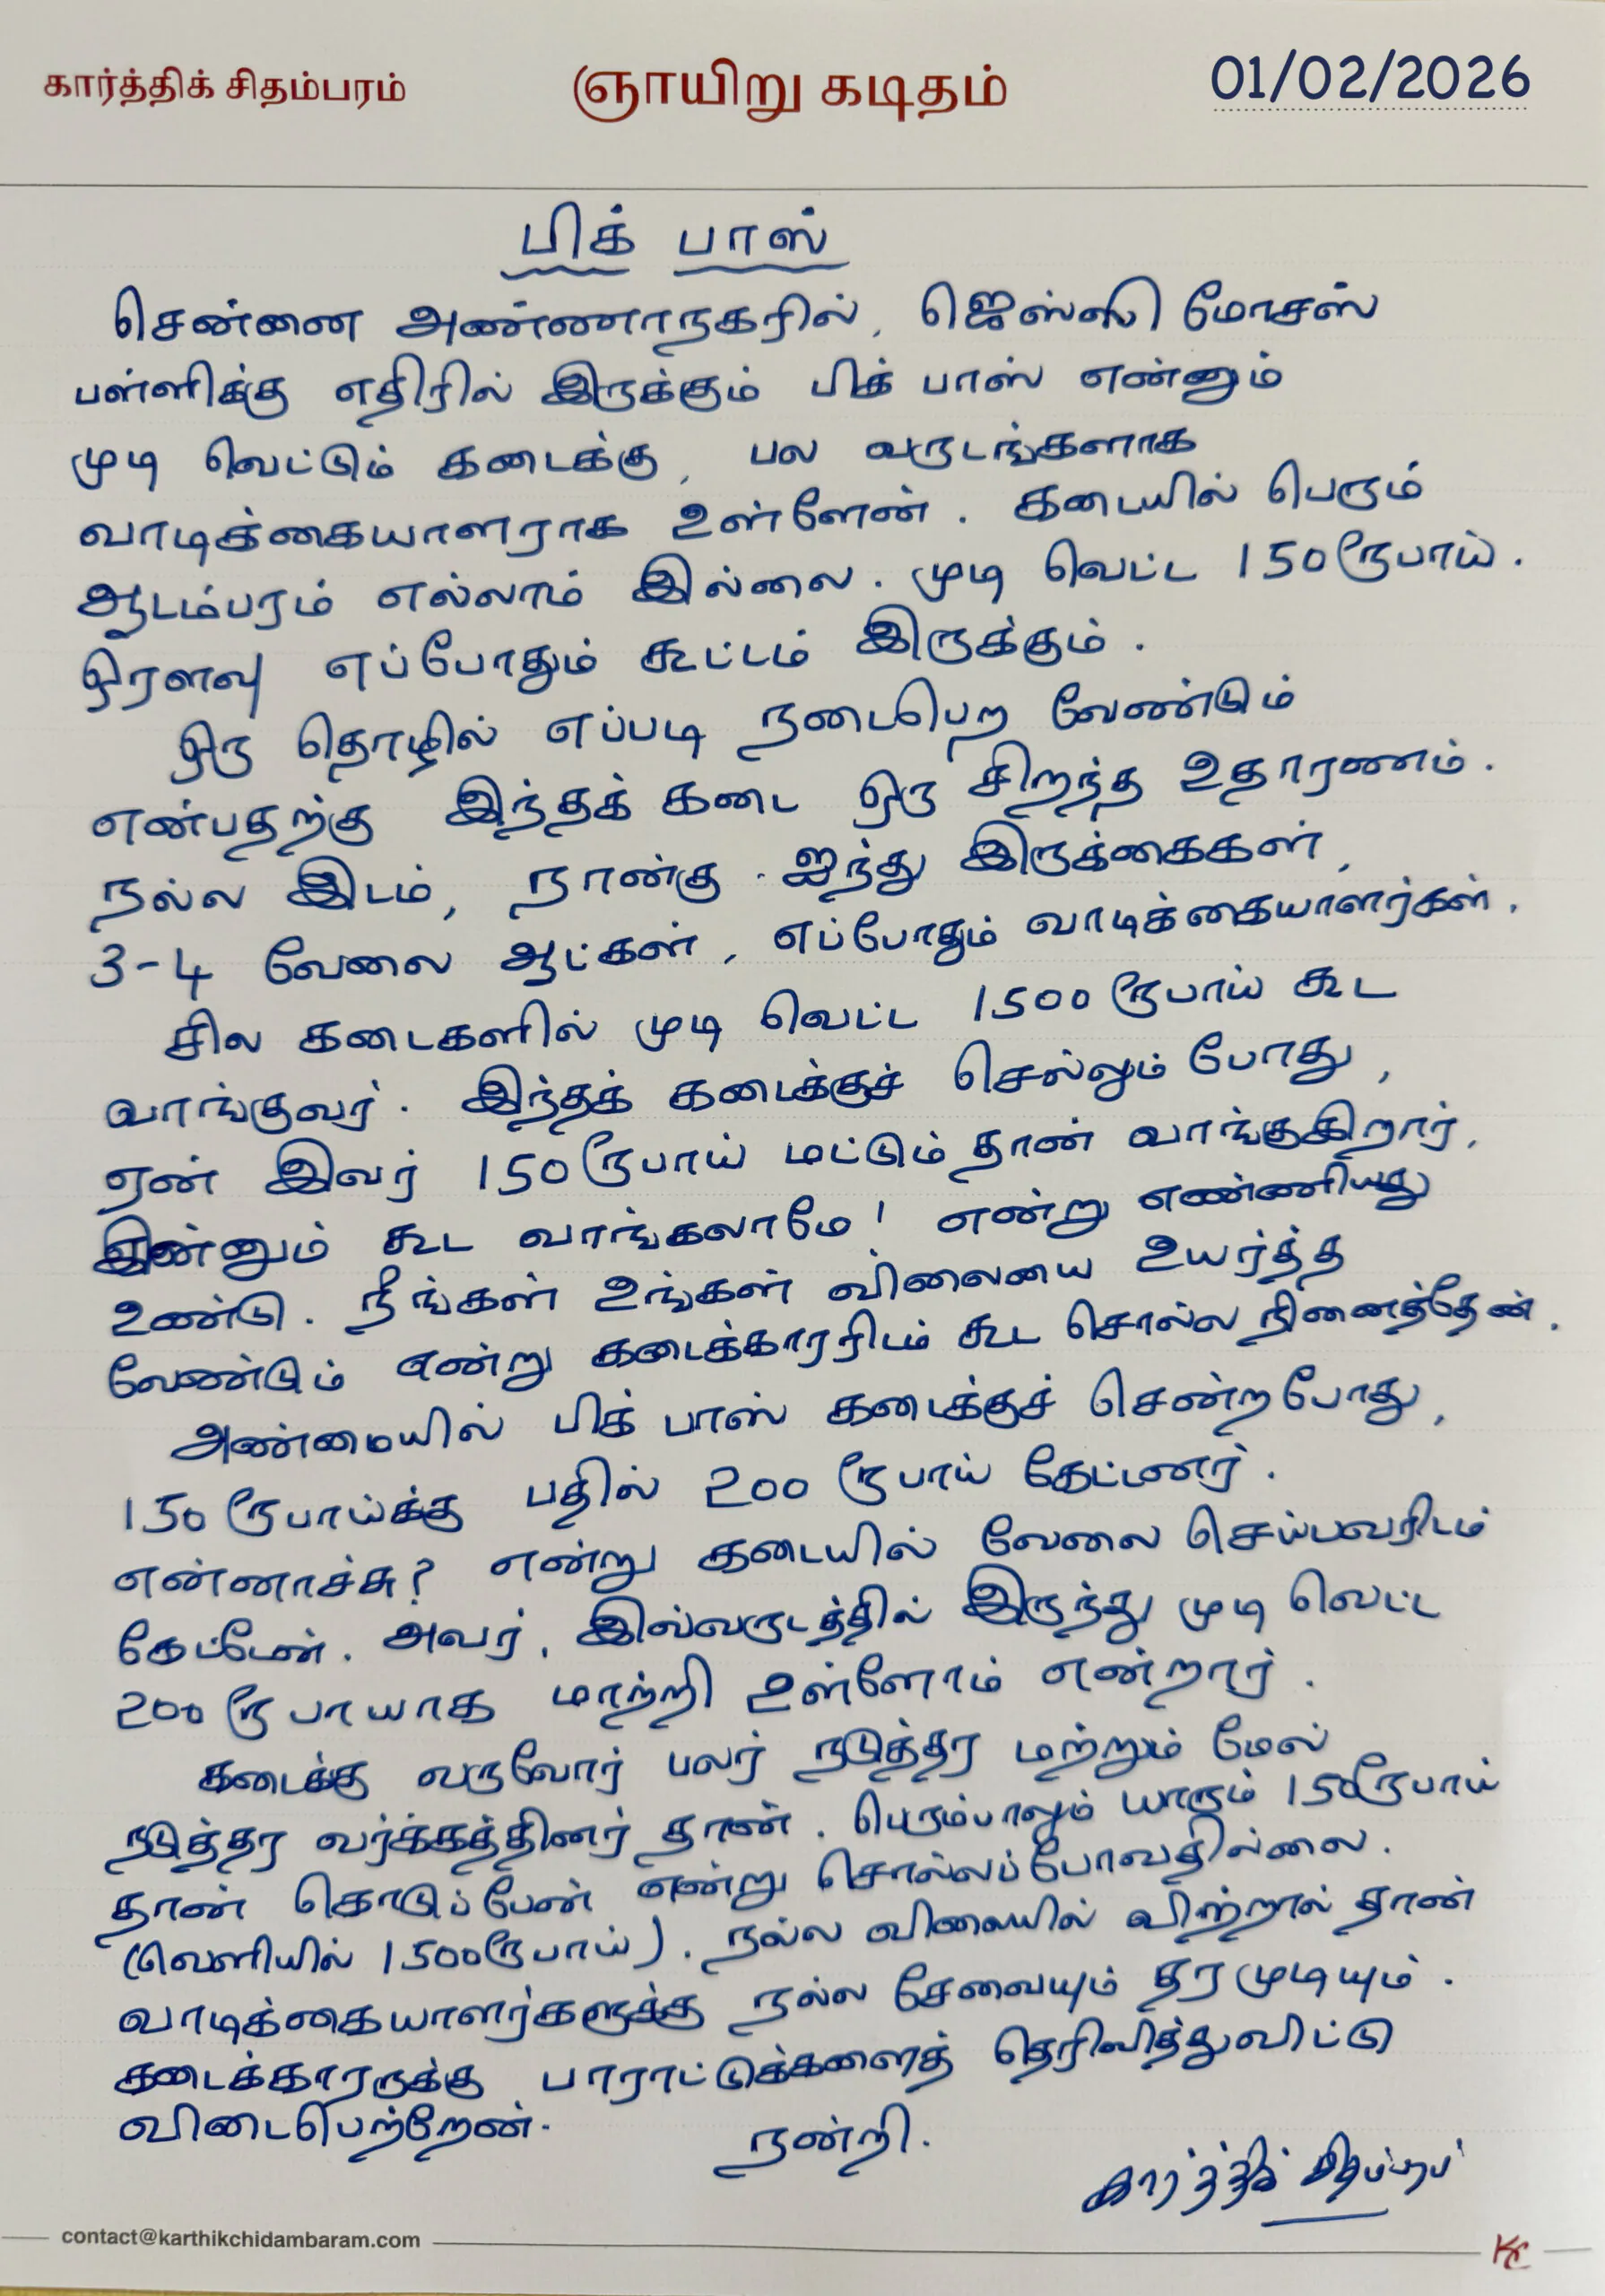 கார்த்திக் சிதம்பரம்
ஞாயிறு கடிதம்
01/02/2026
பிக் பாஸ்
சென்னை அண்ணாநகரில், ஜெஸ்ஸி மோசஸ்
பள்ளிக்கு எதிரில் இருக்கும் பிக் பாஸ் என்னும்
முடி வெட்டும் கடைக்கு, பல வருடங்களாக
வாடிக்கையாளராக உள்ளேன். கடையில் பெரும்
ஆடம்பரம் எல்லாம் இல்லை. முடி வெட்ட 150 ரூபாய்.
ஓரளவு எப்போதும் கூட்டம் இருக்கும்.
ஒரு தொழில் எப்படி நடைபெற வேண்டும்
என்பதற்கு இந்தக் கடை ஒரு சிறந்த உதாரணம்.
நல்ல இடம், நான்கு - ஐந்து இருக்கைகள்,
3-4 வேலை ஆட்கள், எப்போதும் வாடிக்கையாளர்கள்.
சில கடைகளில் முடி வெட்ட 1500 ரூபாய் கூட
வாங்குவர். இந்தக் கடைக்குச் செல்லும் போது,
ஏன் இவர் 150 ரூபாய் மட்டும் தான் வாங்குகிறார்,
இன்னும் கூட வாங்கலாமே! என்று எண்ணியது
உண்டு. நீங்கள் உங்கள் விலையை உயர்த்த
வேண்டும் என்று கடைக்காரரிடம் கூட சொல்ல நினைத்தேன்.
அண்மையில் பிக் பாஸ் கடைக்குச் சென்றபோது,
150 ரூபாய்க்கு பதில் 200 ரூபாய் கேட்டனர்.
என்னாச்சு? என்று கடையில் வேலை செய்பவரிடம்
கேட்டேன். அவர், இவ்வருடத்தில் இருந்து முடி வெட்ட
200 ரூபாயாக மாற்றி உள்ளோம் என்றார்.
கடைக்கு வருவோர் பலர் நடுத்தர மற்றும் மேல்
நடுத்தர வர்க்கத்தினர் தான். பெரும்பாலும் யாரும் 150 ரூபாய்
தான் கொடுப்பேன் என்று சொல்லப்போவதில்லை.
(வெளியில் 1500 ரூபாய்). நல்ல விலையில் விற்றால் தான்
வாடிக்கையாளர்களுக்கு நல்ல சேவையும் தரமுடியும்.
கடைக்காரருக்கு பாராட்டுக்களைத் தெரிவித்துவிட்டு
விடைபெற்றேன்.
நன்றி.
கார்த்திக் சிதம்பரம்
contact@karthikchidambaram.com
KC